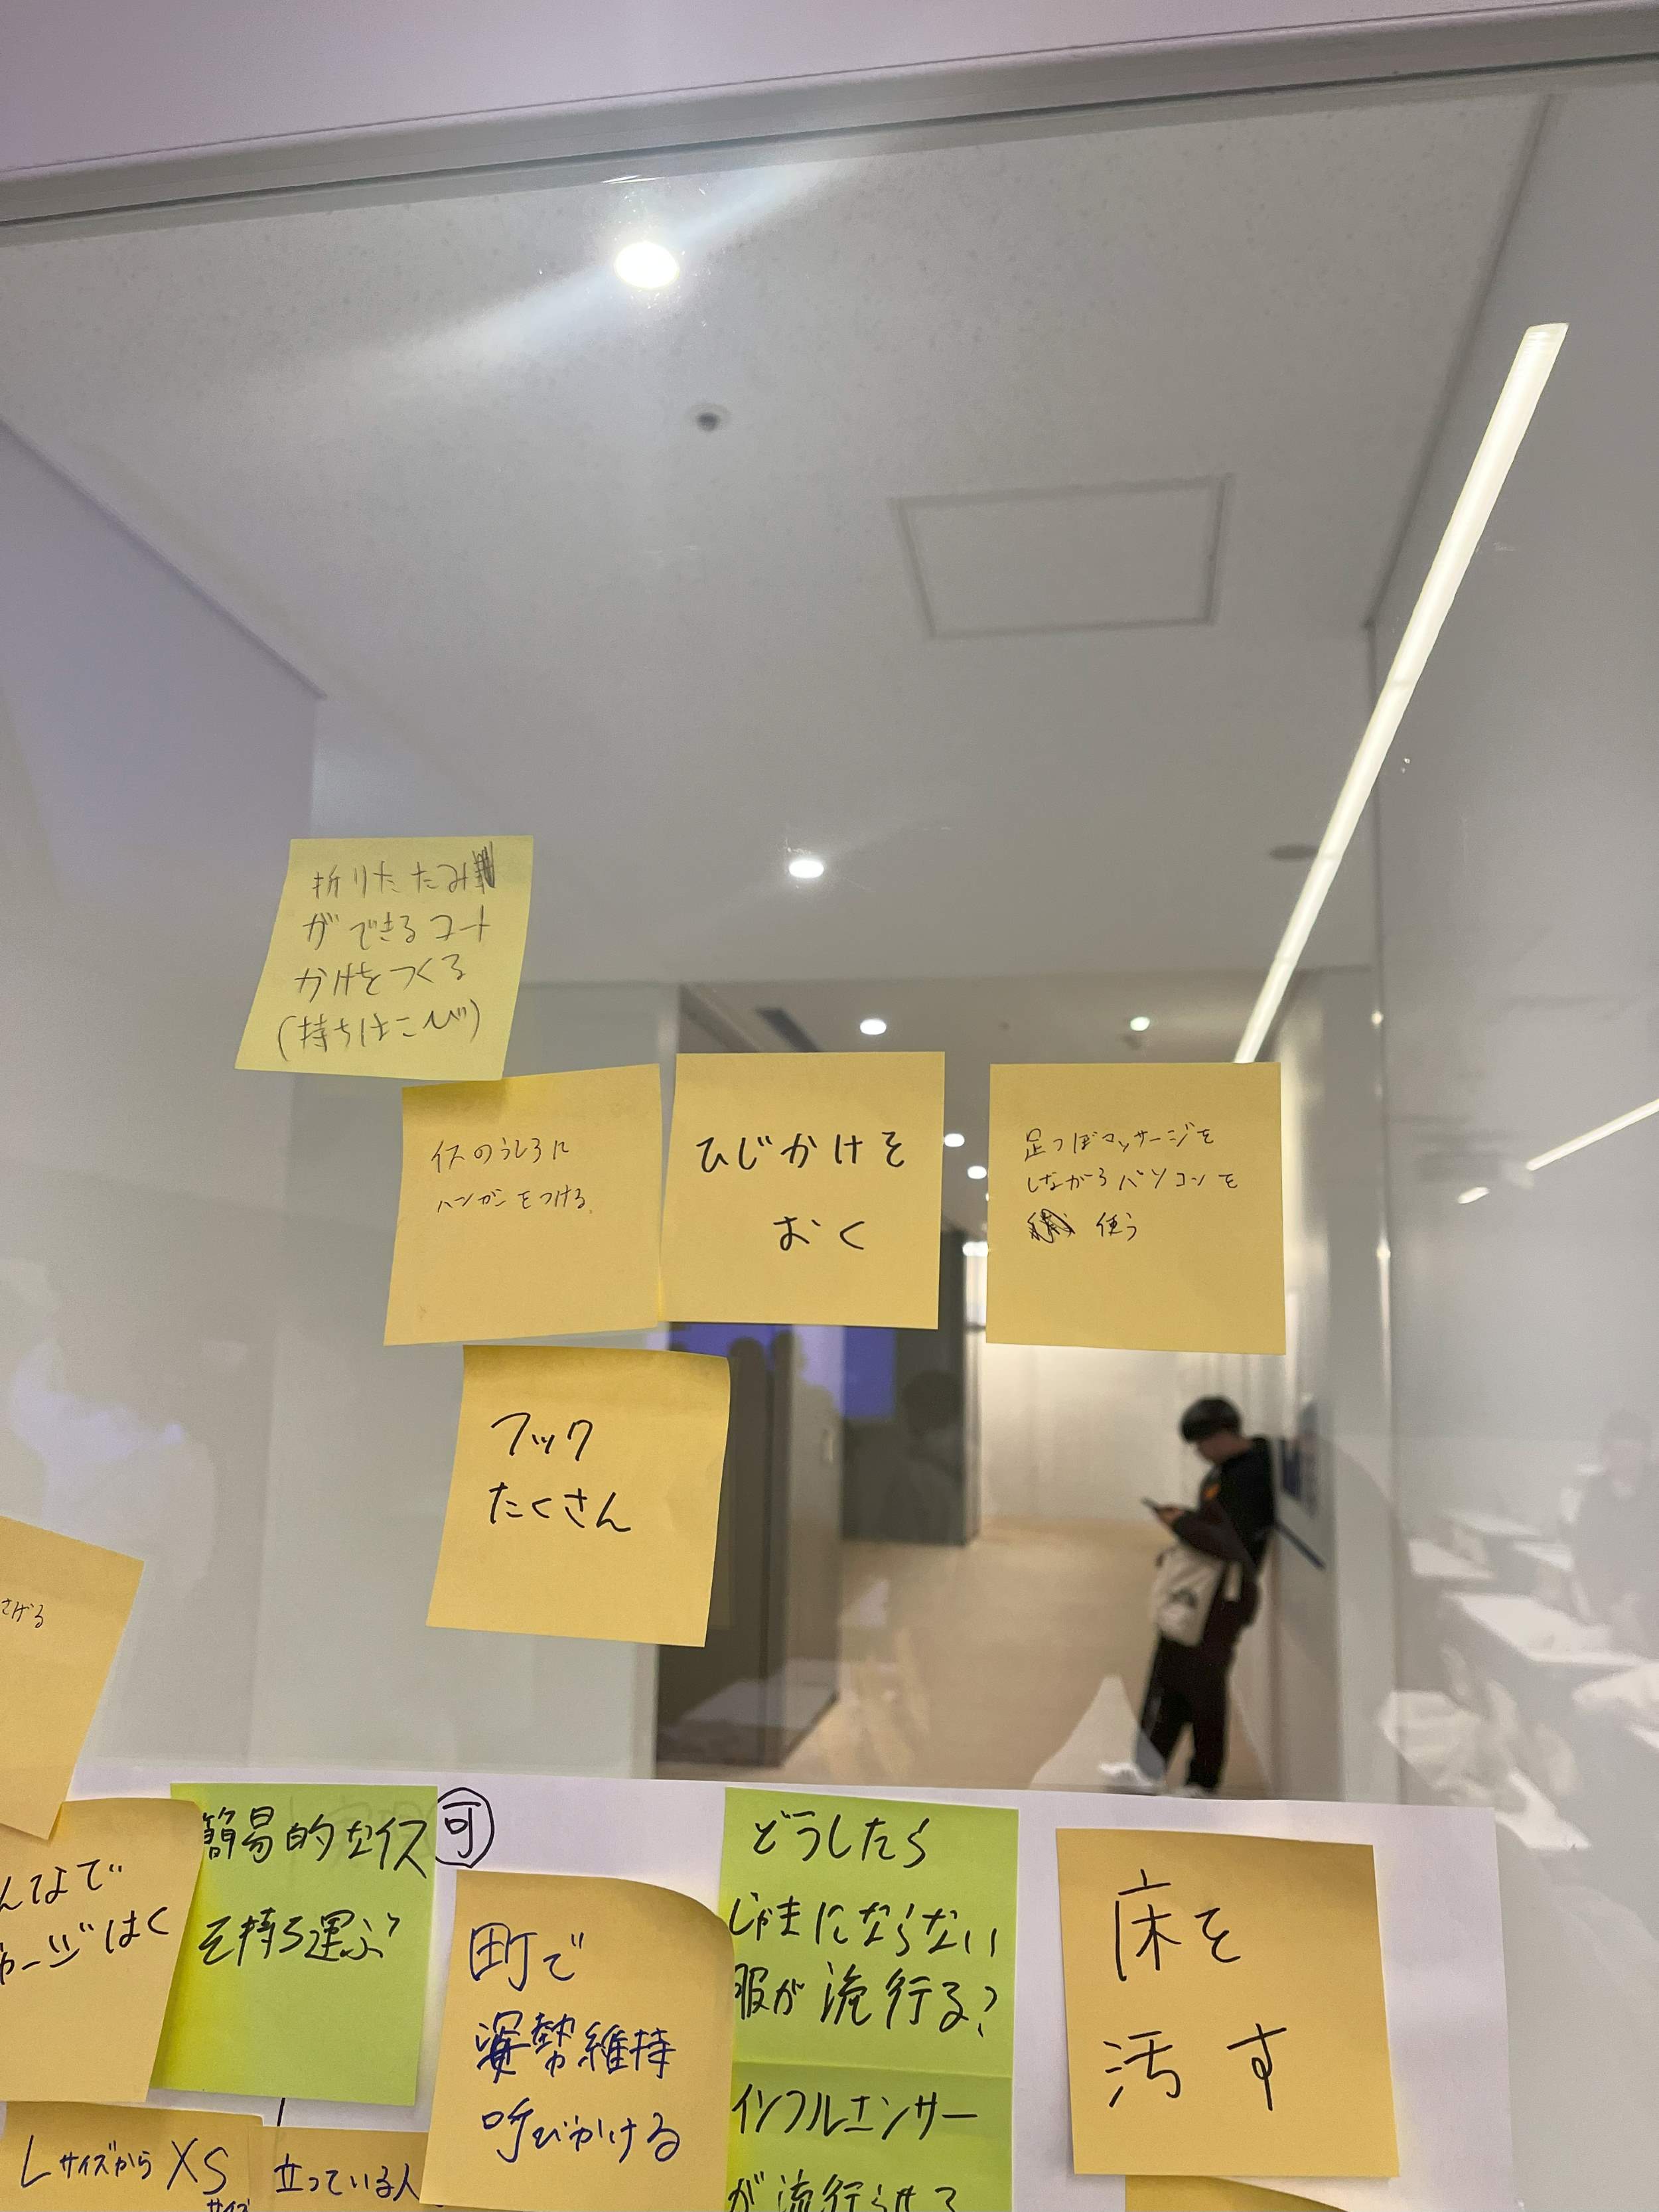 折りたたみ
ができるコート
かけをつくる
(持ちはこび)
イスのうしろに
ハンガーをつける。
ひじかけを
おく
足つぼマッサージを
しながらパソコンを
使う
フック
たくさん
さげる
んなで
ャージはく
簡易的なイス
を持ち運ぶ
可
町で
姿勢維持
呼びかける
どうしたら
じゃまにならない
服が流行る?
インフルエンサー
が流行らせる
床を
汚す
LサイズからXS
サイズ
立っている人